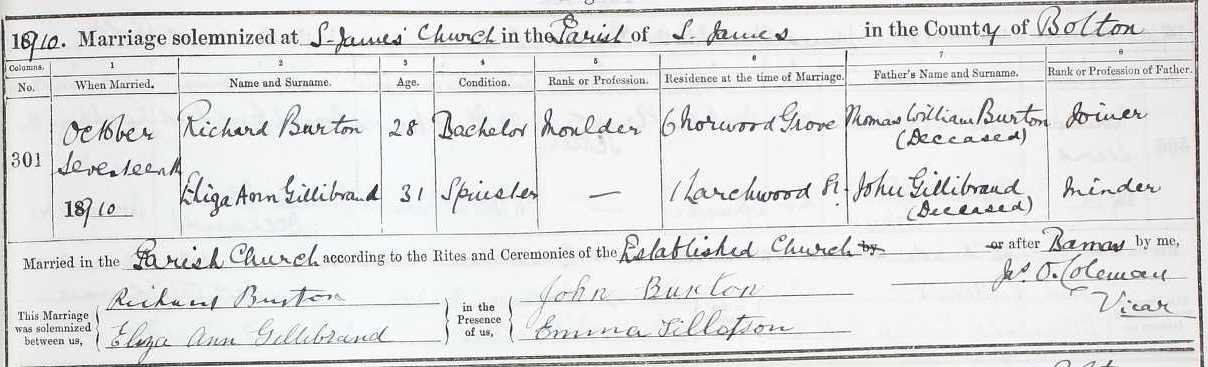 1910. Marriage solemnized at St. James' Church in the Parish of St. James in the County of Bolton
Columns. 1 2 3 4 5 6 7 8
No. When Married. Name and Surname. Age. Condition. Rank or Profession. Residence at the time of Marriage. Father's Name and Surname. Rank or Profession of Father.
October Richard Burton 28 Bachelor Moulder 6 Norwood Grove Thomas William Burton Joiner
(Deceased)
301 Seventeenth
Eliza Ann Gillibrand 31 Spinster — 1 Larchwood St. John Gillibrand Minder
1910 (Deceased)
Married in the Parish Church according to the Rites and Ceremonies of the Established Church by or after Banns by me,
Jas. O. Coleman
Vicar
This Marriage was solemnized between us, Richard Burton in the Presence of us, John Burton
Eliza Ann Gillibrand Emma Tillotson